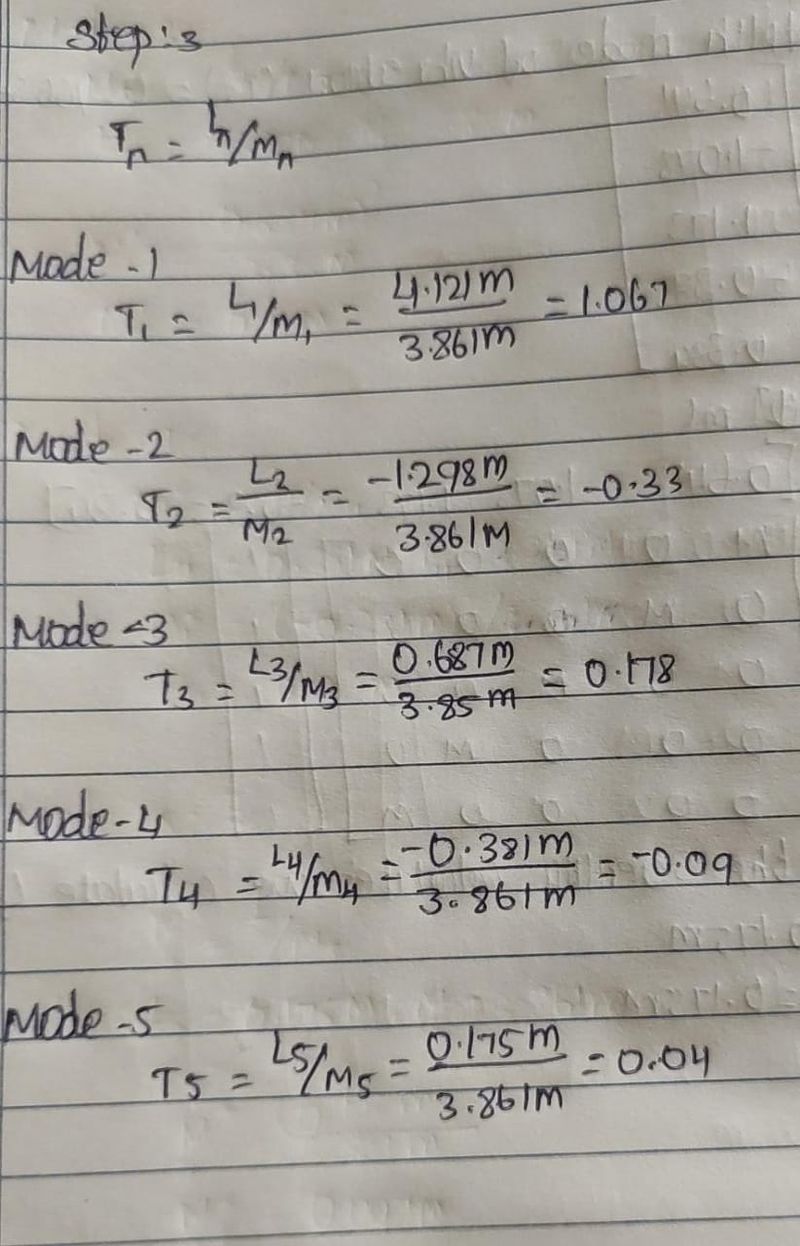 Step:3
Tn = Ln/Mn
Mode -1
T1 = L1/M1 = 4.121m/3.861m = 1.067
Mode -2
T2 = L2/M2 = -1.298m/3.861M = -0.33
Mode -3
T3 = L3/M3 = 0.687m/3.85m = 0.178
Mode-4
T4 = L4/M4 = -0.381m/3.861m = -0.09
Mode -5
T5 = L5/M5 = 0.175m/3.861m = 0.04